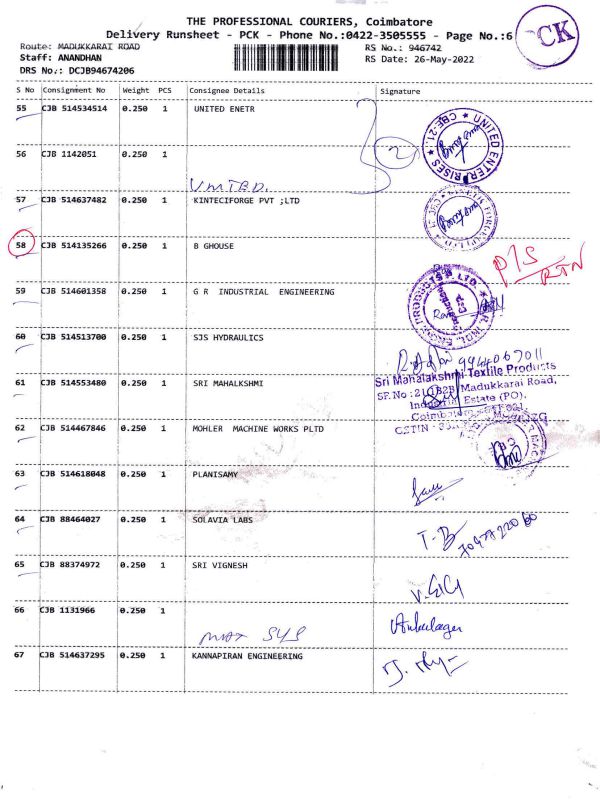 THE PROFESSIONAL COURIERS, Coimbatore
Delivery Runsheet - PCK - Phone No.:0422-3505555 - Page No.:6
CK
Route: MADUKKARAI ROAD
RS No.: 946742
Staff: ANANDHAN
RS Date: 26-May-2022
DRS No.: DCJB94674206
S No Consignment No Weight PCS Consignee Details Signature
55 CJB 514534514 0.250 1 UNITED ENETR
UNITED ENTERPRISES ★ CBE-21. ★
56 CJB 1142051 0.250 1
2
UNITED.
57 CJB 514637482 0.250 1 KINTECIFORGE PVT ;LTD
58 CJB 514135266 0.250 1 B GHOUSE
P/S
RTN
59 CJB 514601358 0.250 1 G R INDUSTRIAL ENGINEERING
60 CJB 514513700 0.250 1 SJS HYDRAULICS
61 CJB 514553480 0.250 1 SRI MAHALKSHMI
Sri Mahalakshmi Textile Products
Madukkarai Road,
Industrial Estate (PO),
62 CJB 514467846 0.250 1 MOHLER MACHINE WORKS PLTD
63 CJB 514618048 0.250 1 PLANISAMY
64 CJB 88464027 0.250 1 SOLAVIA LABS
65 CJB 88374972 0.250 1 SRI VIGNESH
66 CJB 1131966 0.250 1
SYS
67 CJB 514637295 0.250 1 KANNAPIRAN ENGINEERING